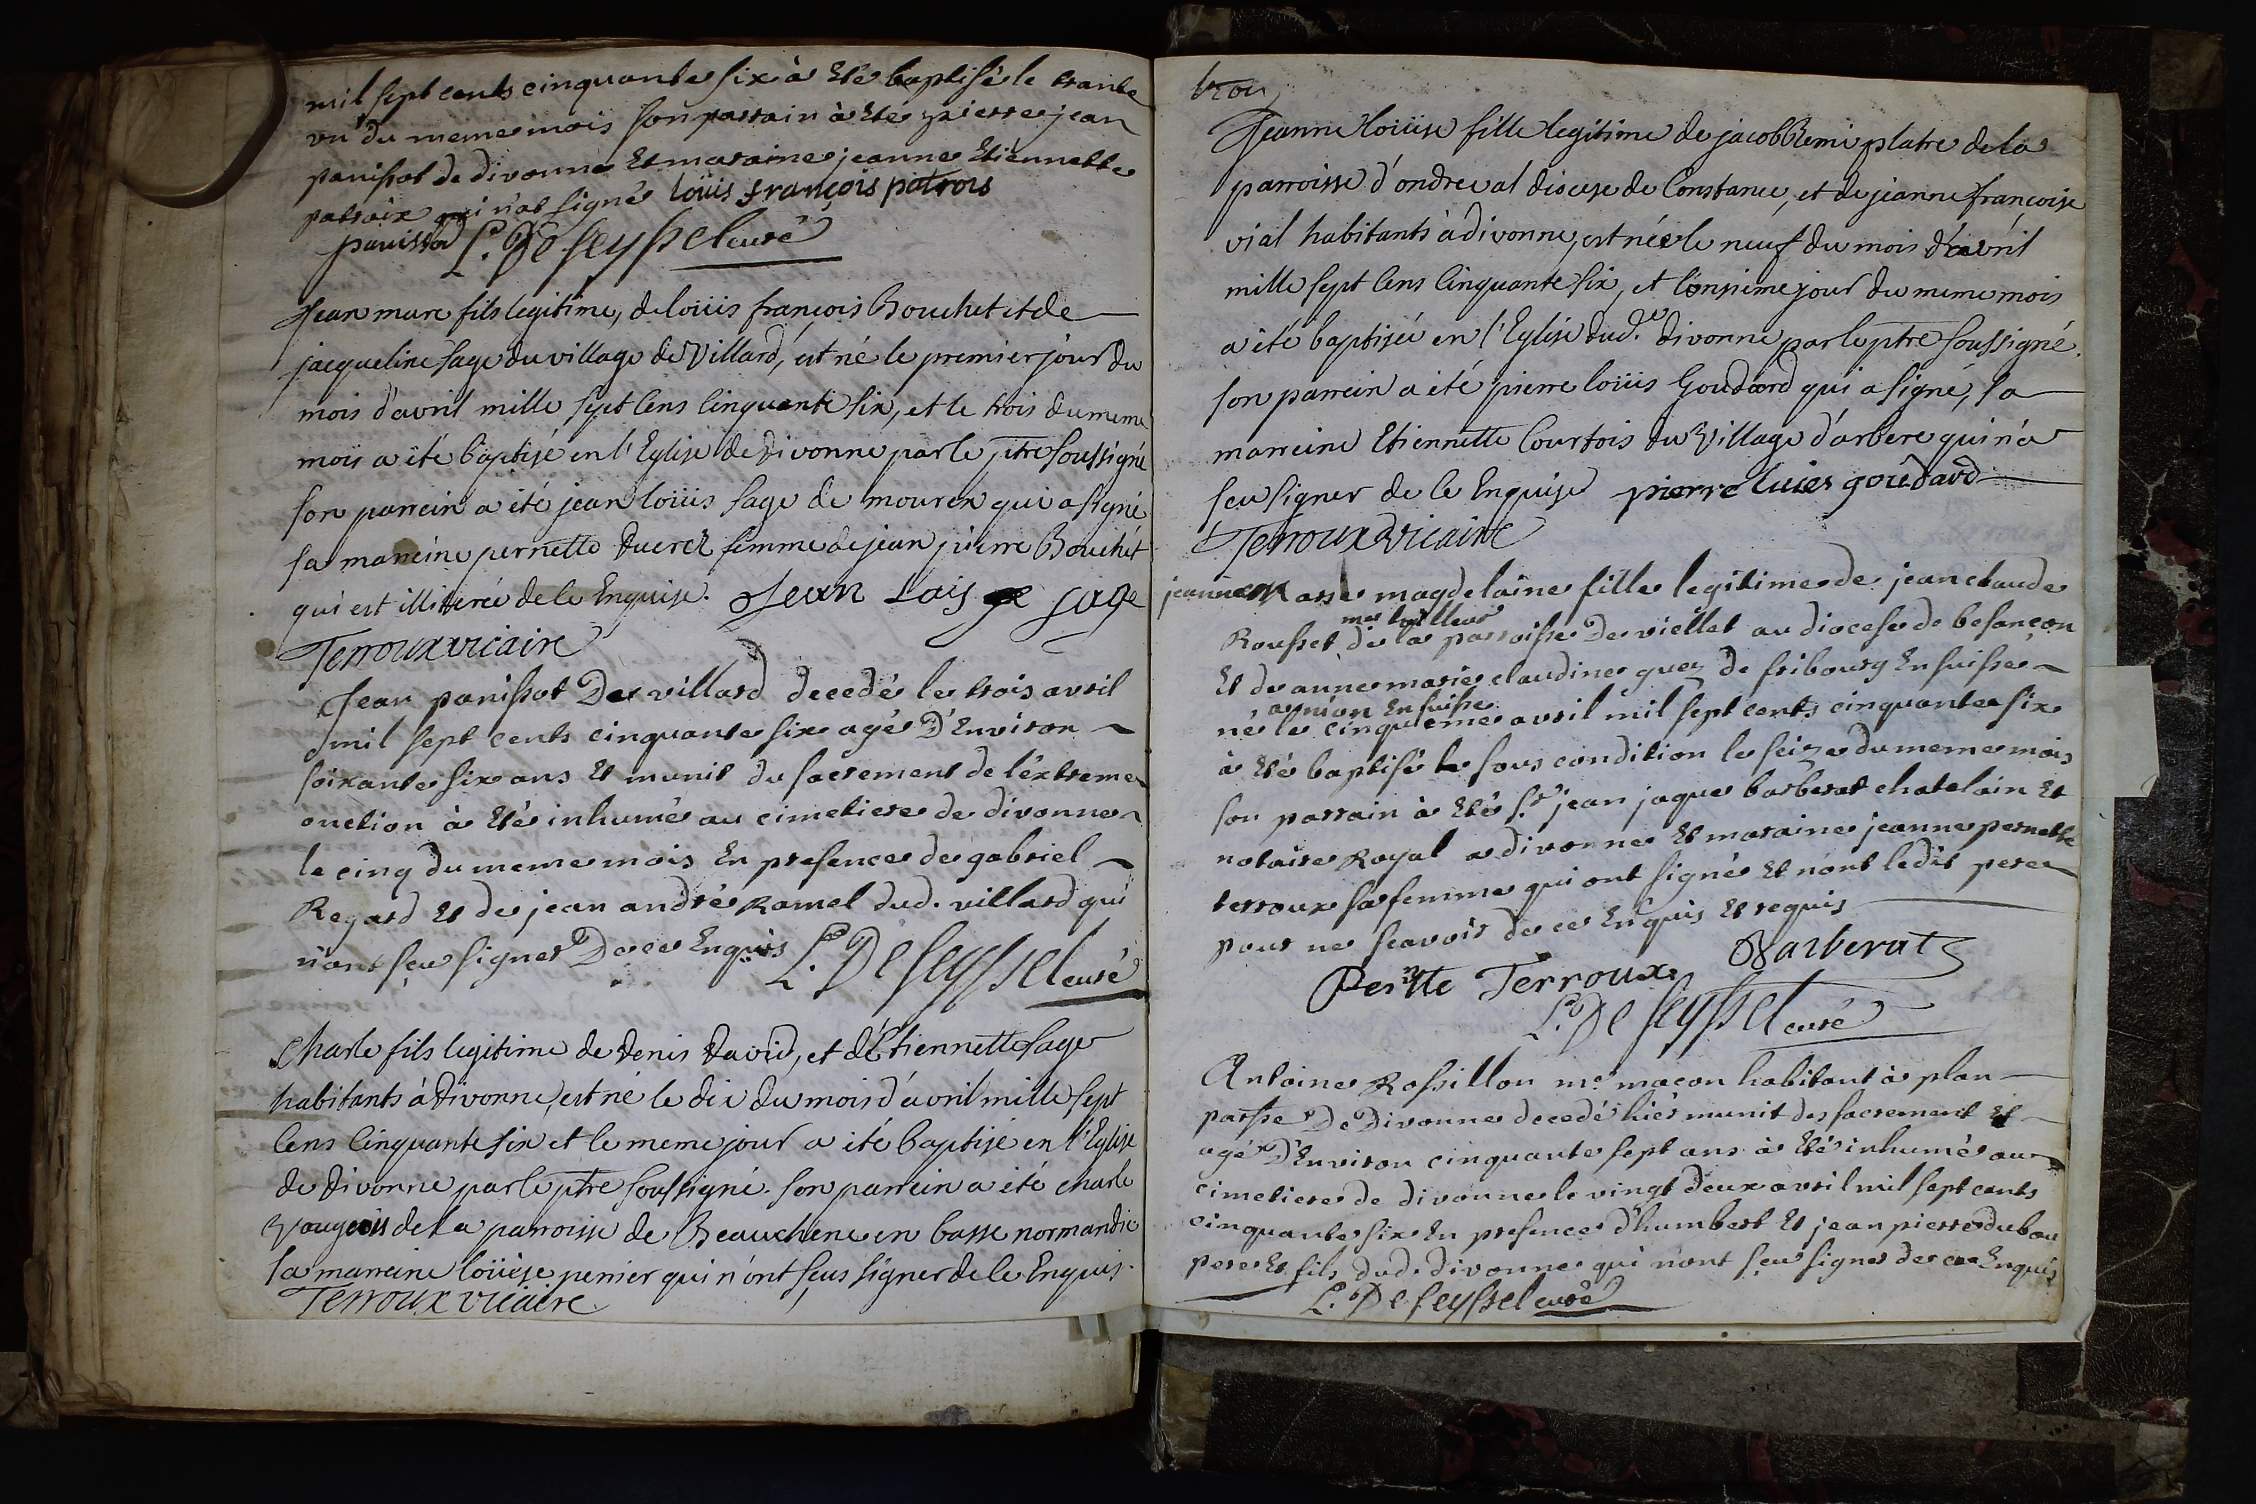 mil sept cents cinquante six à Eté baptisé le trante
un du meme mois son parrain à Eté pierre jean
panissot de divonne Et maraine jeanne Etiennette
patroix qui n'at signé loüis françois patrois
panissod L. De seyssel curé
Jean marc fils legitime, de loüis françois Bouchet et de
jacqueline sage du village de Villard, est né le premier jour du
mois d'avril mille sept cens cinquante six, et le trois du meme
mois a été baptisé en l'Eglise de Divonne par le ptre soussigné
son parrein a été jean loüis sage de mourex qui a signé
sa marreine pernette Duerez femme de jean pierre Bouchet
qui est illiterée de ce Enquise. Jean Lois sage
Terroux vicaire
Jean panissot De villard decedé le trois avril
mil sept cents cinquante six agé D'Environ
soixante six ans Et munit du sacrement de l'éxtreme
onction à Eté inhumé au cimetiere de divonne
le cinq du meme mois En presence de gabriel
Regard Et de jean andré Ramel dud. villard qui
n'ont sçu signer De ce Enquis L. De seyssel curé
Charle fils legitime de Denis David, et d'Etiennette sage
habitants à Divonne, est né le dix du mois d'avril mille sept
cens cinquante six et le meme jour a été baptisé en l'Eglise
de Divonne par le ptre soussigné. son parrein a été charle
Vaugeois de la parroisse de Beauchene en basse normandie
sa marreine loüise penier qui n'ont seus signer de ce Enquis.
Terroux vicaire
Jeanne loüise fille legitime de jacob Remi platre de la
parroisse d'ondreval diocese de Constance, et de jeanne françoise
vial habitants à divonne, est née le neuf du mois d'avril
mille sept cens cinquante six, et l'onzieme jour du meme mois
a été baptisée en l'Eglise dud. divonne par le ptre soussigné.
son parrein a été pierre loüis Goudard qui a signé, sa
marreine Etiennette Courtois du Village d'arbere qui n'a
seu signer de ce Enquise pierre luies gouedard
Terroux Vicaire
jeanne marie magdelaine fille legitime de jean claude
me tailleur
Rousset de la parroisse de viellet au diocese de besançon
Et de anne marie claudine guez de fribourg En suisse
a nion En suisse
né le cinquieme avril mil sept cents cinquante six
à Eté baptisé sous condition le seize du meme mois
son parrain à Eté Sr. jean jaque barberat chatelain Et
notaire Royal a divonne Et maraine jeanne pernette
terroux sa femme qui ont signé Et n'ont ledit pere
pour ne scavoir de ce Enquis Et requis
Pernette Terroux Barberat
L. De seyssel curé
Antoine Rossillon me macon habitant à plan
passe De Divonne decedé hier munit des sacrement Et
agé D'Environ cinquante sept ans à Eté inhumé au
cimetiere de divonne le vingt deux avril mil sept cents
cinquante six En presence d'humbert Et jean pierre dubou
pere Et fils dud. divonne qui n'ont sçu signer de ce Enquis
L. De seyssel curé